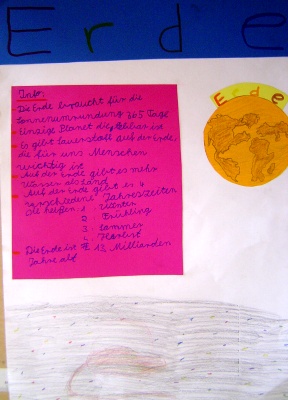 Erde
Erde
Info:
Die Erde braucht für die
Sonnenumrundung 365 Tage
Einzige Planet die lebbar ist
Es gibt Sauerstoff auf der Erde,
die für uns Menschen
wichtig ist
Auf der Erde gibt es mehr
Wasser als Land
Auf der Erde gibt es 4
verschiedene Jahreszeiten
Die heißen: 1. Winter
2. Frühling
3. Sommer
4. Herbst
Die Erde ist 13, Milliarden
Jahre alt